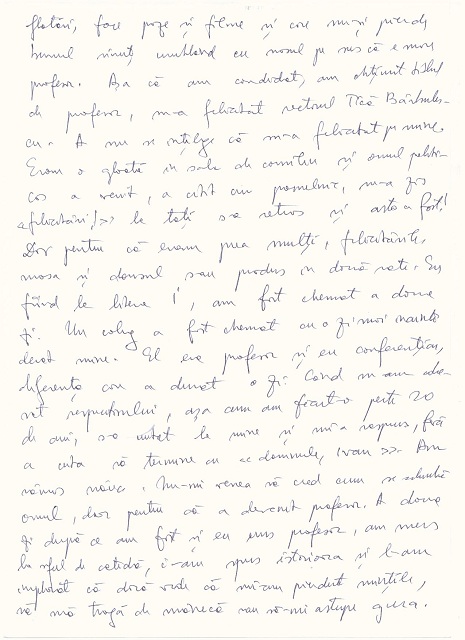 flotări, face poze și filme și care nu-și pierde
bunul simț umblând cu nasul pe sus că e mare
profesor. Așa că am candidat, am obținut titlul
de profesor, m-a felicitat rectorul Tică Bărbules-
cu. A nu se înțelege că m-a felicitat pe mine.
Eram o gloată în sala de consiliu și omul politi-
cos a venit, a citit un pomelnic, ne-a zis
«felicitări!» la toți s-a retras și asta a fost!
Dar pentru că eram prea mulți, felicitările,
masa și dansul s-au produs în două rate. Eu
fiind la litera I, am fost chemat a doua
zi. Un coleg a fost chemat cu o zi mai înainte
decât mine. El era profesor și eu conferențiar,
diferență care a durat o zi. Când m-am adre-
sat respectivului, așa cum am făcut-o peste 20
de ani, s-a uitat la mine și mi-a răspuns, fără
a căta să termine cu «domnule, Ivan». Am
rămas năuc. Nu-mi venea să cred cum se schimbă
omul, doar pentru că a devenit profesor. A doua
zi după ce am fost și eu uns profesor, am mers
la șeful de catedră, i-am spus istorioara și l-am
implorat că dacă vede că mi-am pierdut mințile,
să mă tragă de mânecă sau să-mi astupe gura.